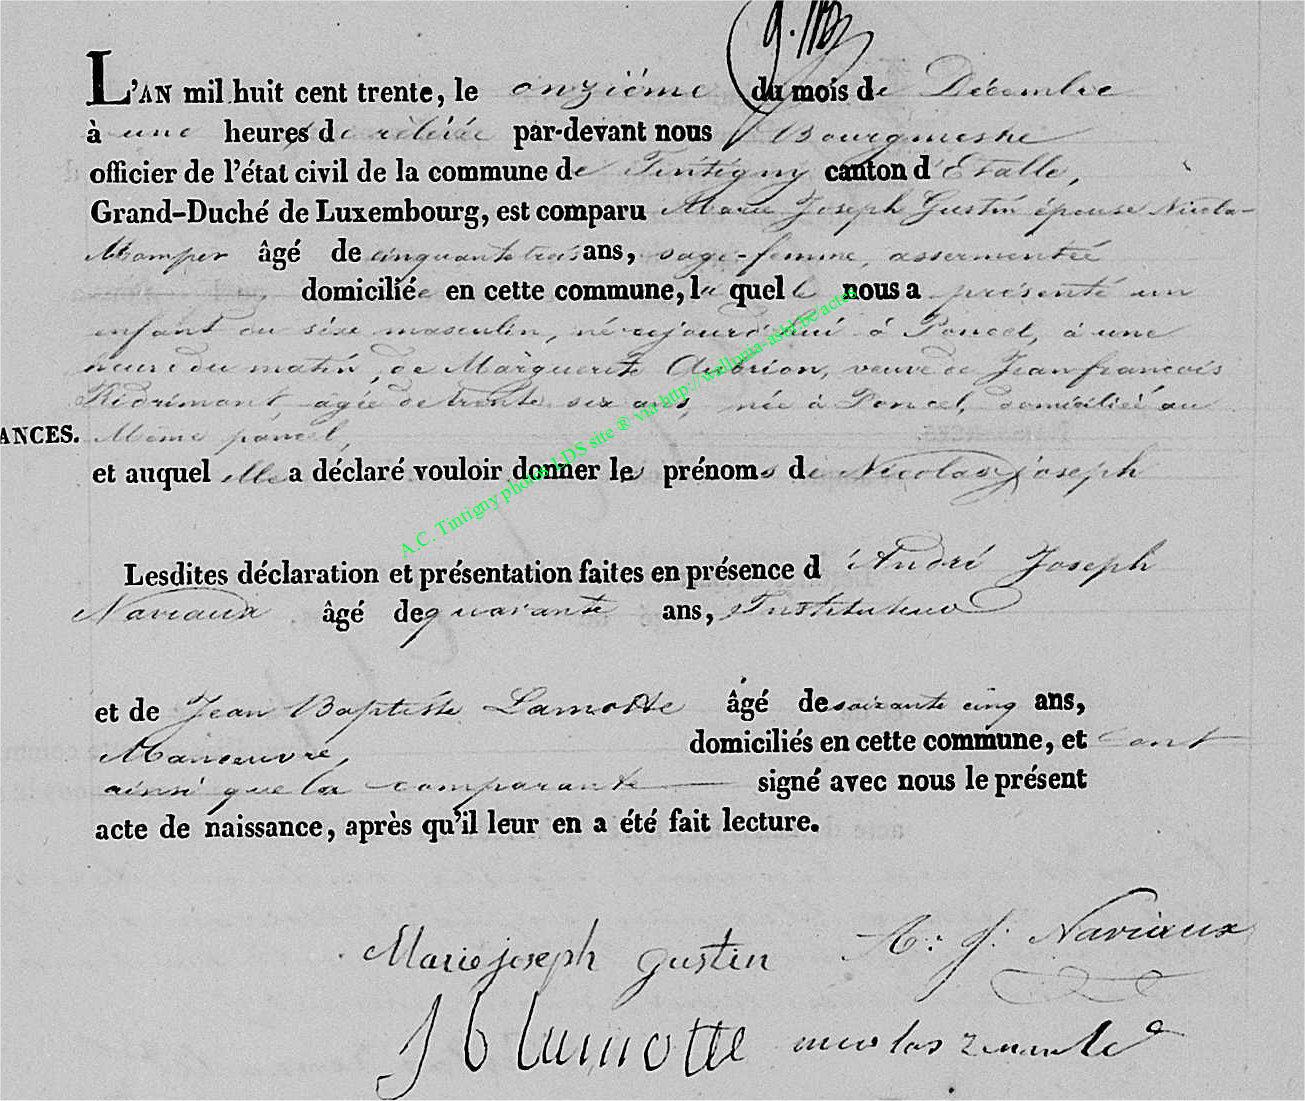 L'AN mil huit cent trente, le onzième du mois de Décembre
à une heures de relévée par-devant nous Bourgmestre
officier de l'état civil de la commune de Tintigny canton d'Etalle,
Grand-Duché de Luxembourg, est comparu Marie Joseph Gustin épouse Nicolas
Mamper âgé de cinquante trois ans, sage-femme, assermentée
domiciliée en cette commune, la quelle nous a présenté un
enfant du sexe masculin, né aujourd'hui à Poncel, à une
heure du matin, de Marguerite Aubrion, veuve de Jean françois
agée de trente six ans, née à Poncel, domiciliée au
ANCES. Même poncel,
et auquel elle a déclaré vouloir donner les prénoms de Nicolas joseph
A.C. Tintigny photos LDS site ® via http://wallonia-asbl.be/actes
Lesdites déclaration et présentation faites en présence d'André Joseph
Naviaux âgé de quarante ans, Instituteur
et de Jean Baptiste Lamotte âgé de soixante cinq ans,
Manoeuvre, domiciliés en cette commune, et ont
ainsi que la comparante signé avec nous le présent
acte de naissance, après qu'il leur en a été fait lecture.
Marie joseph gustin A: J: Naviaux
J b lamotte